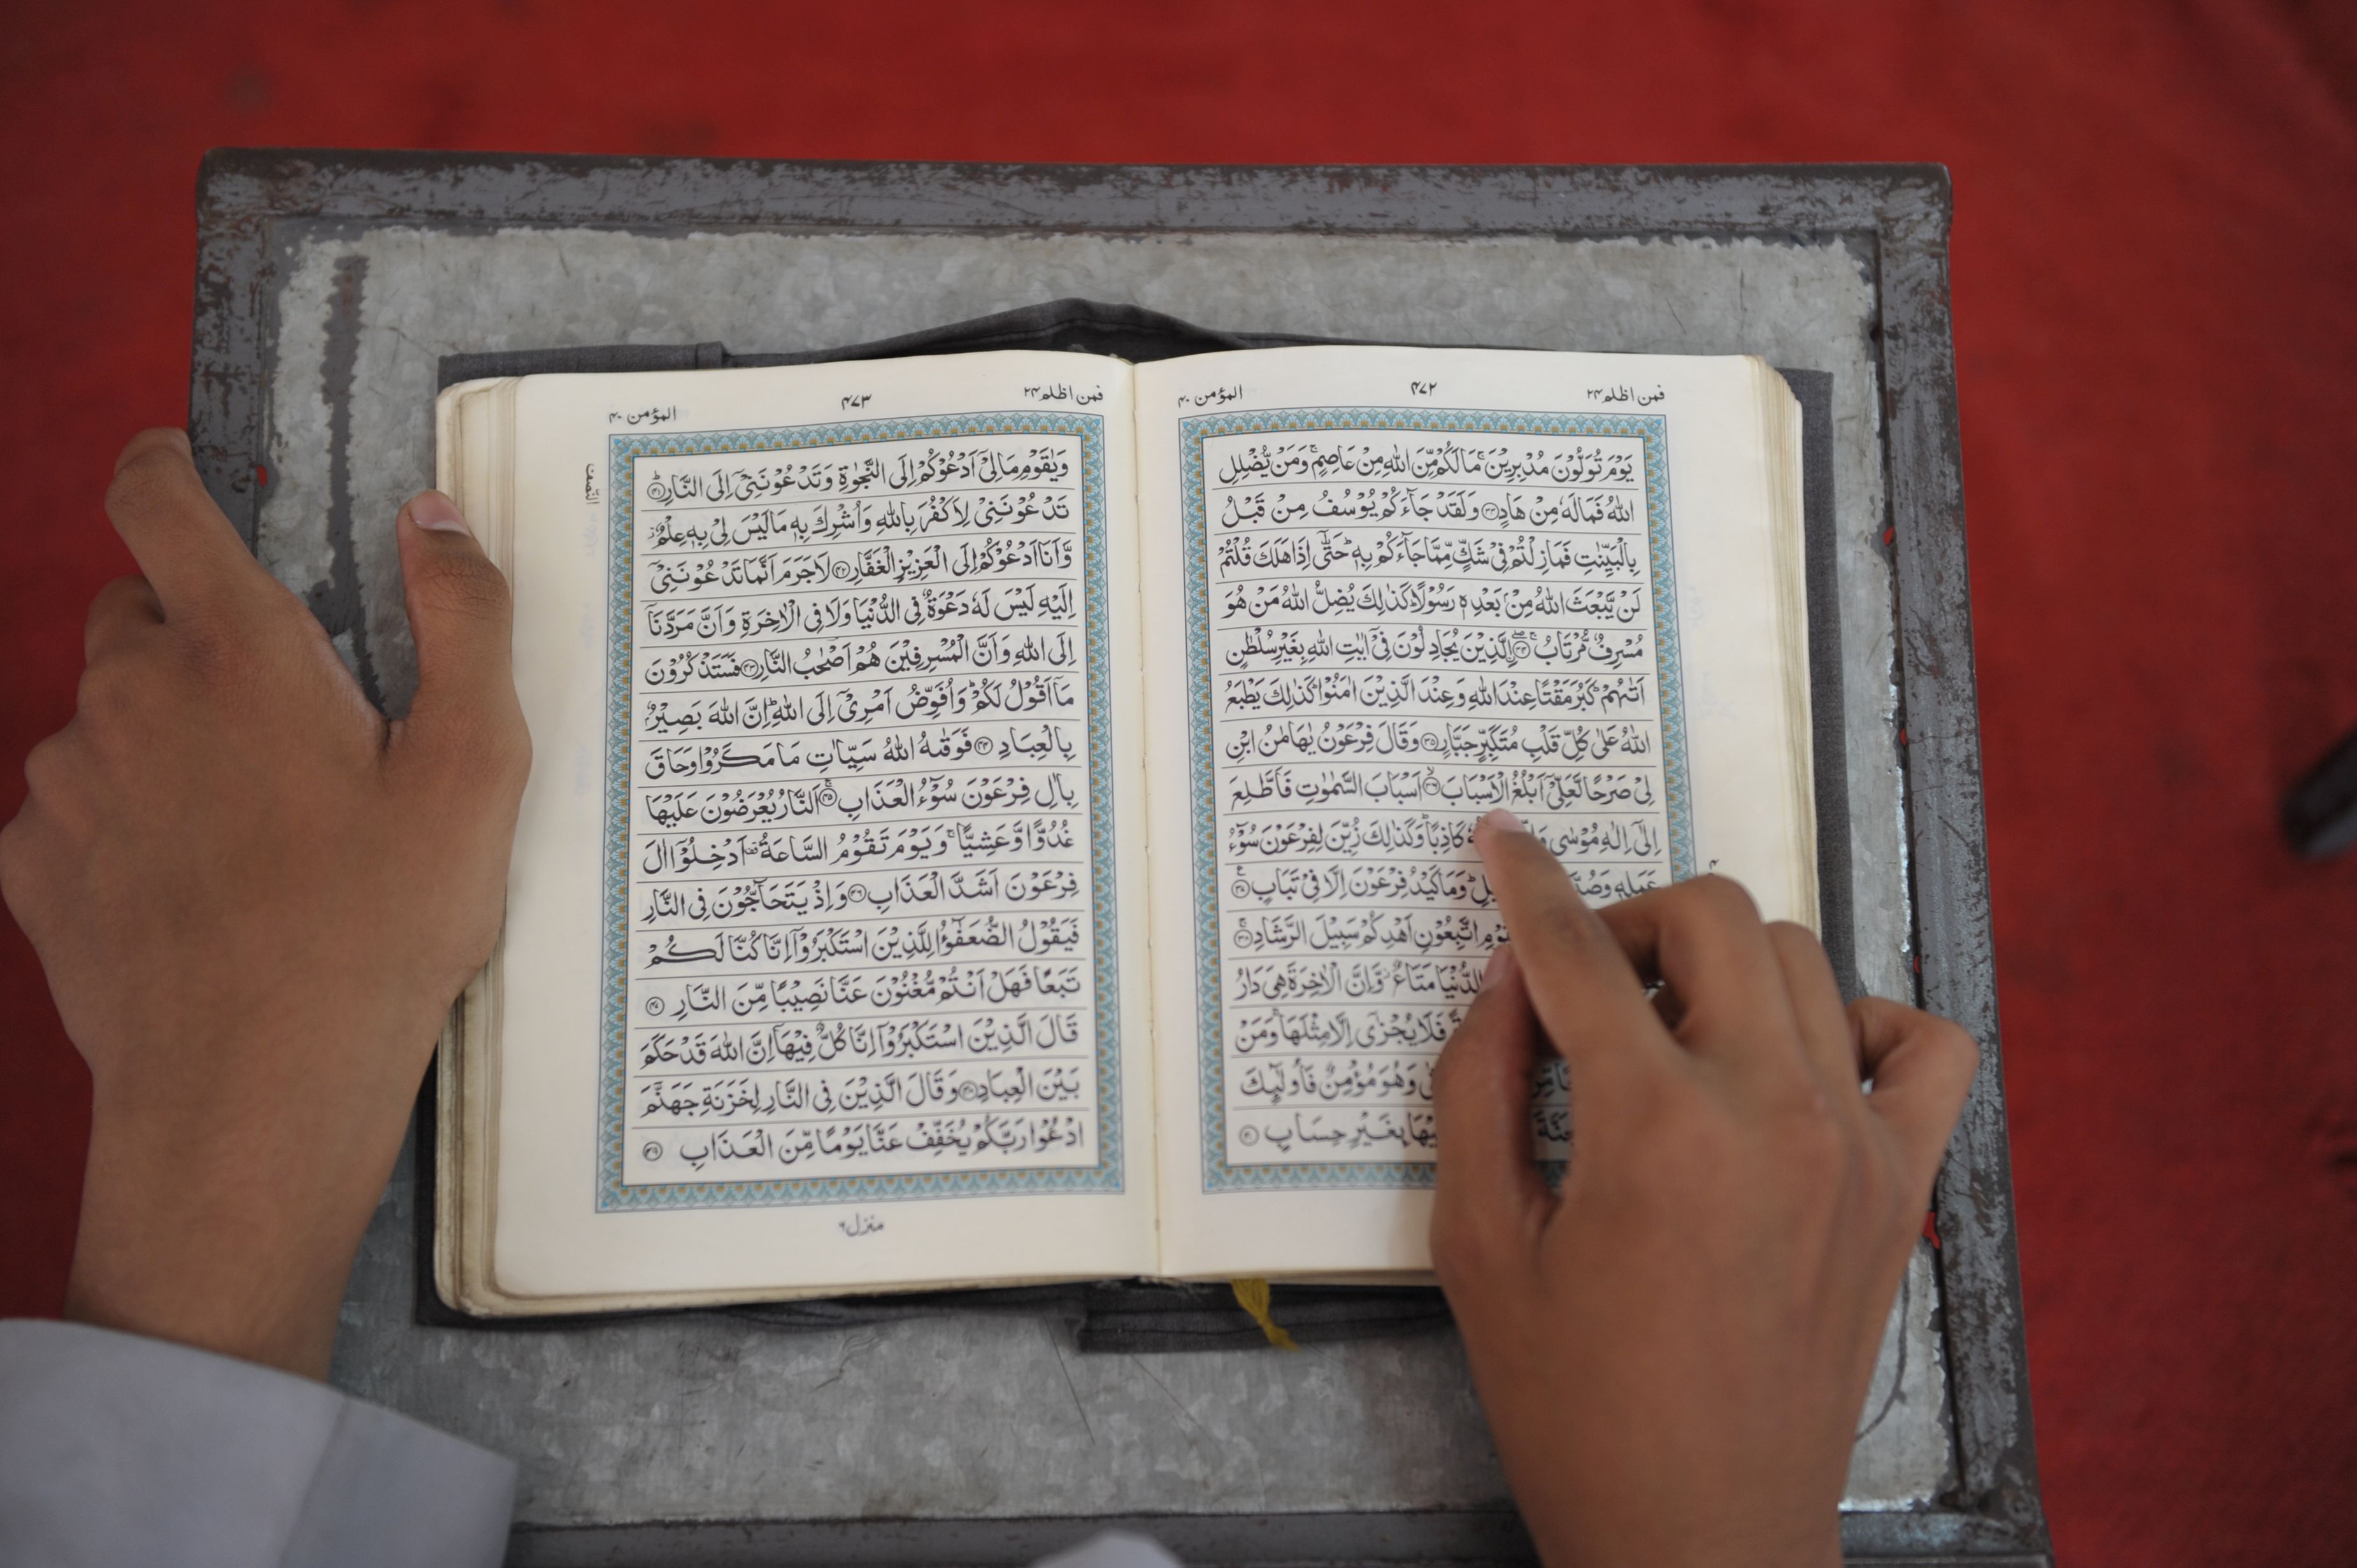 فمن اظلم ۲۴
۴۷۲
المؤمن ۴۰
يَوْمَ تُوَلُّوْنَ مُدْبِرِيْنَ ۚ مَا لَكُمْ مِّنَ اللّٰهِ مِنْ عَاصِمٍ ۚ وَمَنْ يُّضْلِلِ
اللّٰهُ فَمَا لَهٗ مِنْ هَادٍ ۳۳ وَلَقَدْ جَآءَكُمْ يُوْسُفُ مِنْ قَبْلُ
بِالْبَيِّنٰتِ فَمَازِلْتُمْ فِيْ شَكٍّ مِّمَّا جَآءَكُمْ بِهٖ ؕ حَتّٰٓى اِذَا هَلَكَ قُلْتُمْ
لَنْ يَّبْعَثَ اللّٰهُ مِنْۢ بَعْدِهٖ رَسُوْلًا ؕ كَذٰلِكَ يُضِلُّ اللّٰهُ مَنْ هُوَ
مُسْرِفٌ مُّرْتَابُ ۚ ۳۴ اۨلَّذِيْنَ يُجَادِلُوْنَ فِيْٓ اٰيٰتِ اللّٰهِ بِغَيْرِ سُلْطٰنٍ
اَتٰىهُمْ ؕ كَبُرَ مَقْتًا عِنْدَ اللّٰهِ وَعِنْدَ الَّذِيْنَ اٰمَنُوْا ؕ كَذٰلِكَ يَطْبَعُ
اللّٰهُ عَلٰى كُلِّ قَلْبِ مُتَكَبِّرٍ جَبَّارٍ ۳۵ وَقَالَ فِرْعَوْنُ يٰهَامٰنُ ابْنِ
لِيْ صَرْحًا لَّعَلِّيْٓ اَبْلُغُ الْاَسْبَابَ ۙ ۳۶ اَسْبَابَ السَّمٰوٰتِ فَاَطَّلِعَ
اِلٰٓى اِلٰهِ مُوْسٰى كَاذِبًا ؕ وَكَذٰلِكَ زُيِّنَ لِفِرْعَوْنَ سُوْٓءُ
عَمَلِهٖ وَمَا كَيْدُ فِرْعَوْنَ اِلَّا فِيْ تَبَابٍ ۳۷
اتَّبِعُوْنِ اَهْدِكُمْ سَبِيْلَ الرَّشَادِ ۚ ۳۸
الدُّنْيَا مَتَاعٌ ؗ وَّاِنَّ الْاٰخِرَةَ هِيَ دَارُ
فَلَا يُجْزٰٓى اِلَّا مِثْلَهَا ۚ وَمَنْ
وَهُوَ مُؤْمِنٌ فَاُولٰٓئِكَ
بِغَيْرِ حِسَابٍ ۴۰
فمن اظلم ۲۴
۴۷۳
المؤمن ۴۰
وَيٰقَوْمِ مَا لِيْٓ اَدْعُوْكُمْ اِلَى النَّجٰوةِ وَتَدْعُوْنَنِيْٓ اِلَى النَّارِ ؕ ۴۱
تَدْعُوْنَنِيْ لِاَكْفُرَ بِاللّٰهِ وَاُشْرِكَ بِهٖ مَا لَيْسَ لِيْ بِهٖ عِلْمٌ ؗ
وَّاَنَا اَدْعُوْكُمْ اِلَى الْعَزِيْزِ الْغَفَّارِ ۴۲ لَا جَرَمَ اَنَّمَا تَدْعُوْنَنِيْٓ
اِلَيْهِ لَيْسَ لَهٗ دَعْوَةٌ فِي الدُّنْيَا وَلَا فِي الْاٰخِرَةِ وَاَنَّ مَرَدَّنَآ
اِلَى اللّٰهِ وَاَنَّ الْمُسْرِفِيْنَ هُمْ اَصْحٰبُ النَّارِ ۴۳ فَسَتَذْكُرُوْنَ
مَآ اَقُوْلُ لَكُمْ ؕ وَاُفَوِّضُ اَمْرِيْٓ اِلَى اللّٰهِ ؕ اِنَّ اللّٰهَ بَصِيْرٌۢ
بِالْعِبَادِ ۴۴ فَوَقٰىهُ اللّٰهُ سَيِّاٰتِ مَا مَكَرُوْا وَحَاقَ
بِاٰلِ فِرْعَوْنَ سُوْٓءُ الْعَذَابِ ۚ ۴۵ اَلنَّارُ يُعْرَضُوْنَ عَلَيْهَا
غُدُوًّا وَّعَشِيًّا ۚ وَيَوْمَ تَقُوْمُ السَّاعَةُ ۟ اَدْخِلُوْٓا اٰلَ
فِرْعَوْنَ اَشَدَّ الْعَذَابِ ۴۶ وَاِذْ يَتَحَآجُّوْنَ فِي النَّارِ
فَيَقُوْلُ الضُّعَفٰٓؤُا لِلَّذِيْنَ اسْتَكْبَرُوْٓا اِنَّا كُنَّا لَكُمْ
تَبَعًا فَهَلْ اَنْتُمْ مُّغْنُوْنَ عَنَّا نَصِيْبًا مِّنَ النَّارِ ۴۷
قَالَ الَّذِيْنَ اسْتَكْبَرُوْٓا اِنَّا كُلٌّ فِيْهَآ ۙ اِنَّ اللّٰهَ قَدْ حَكَمَ
بَيْنَ الْعِبَادِ ۴۸ وَقَالَ الَّذِيْنَ فِي النَّارِ لِخَزَنَةِ جَهَنَّمَ
ادْعُوْا رَبَّكُمْ يُخَفِّفْ عَنَّا يَوْمًا مِّنَ الْعَذَابِ ۴۹
النّصف
منزل ۶